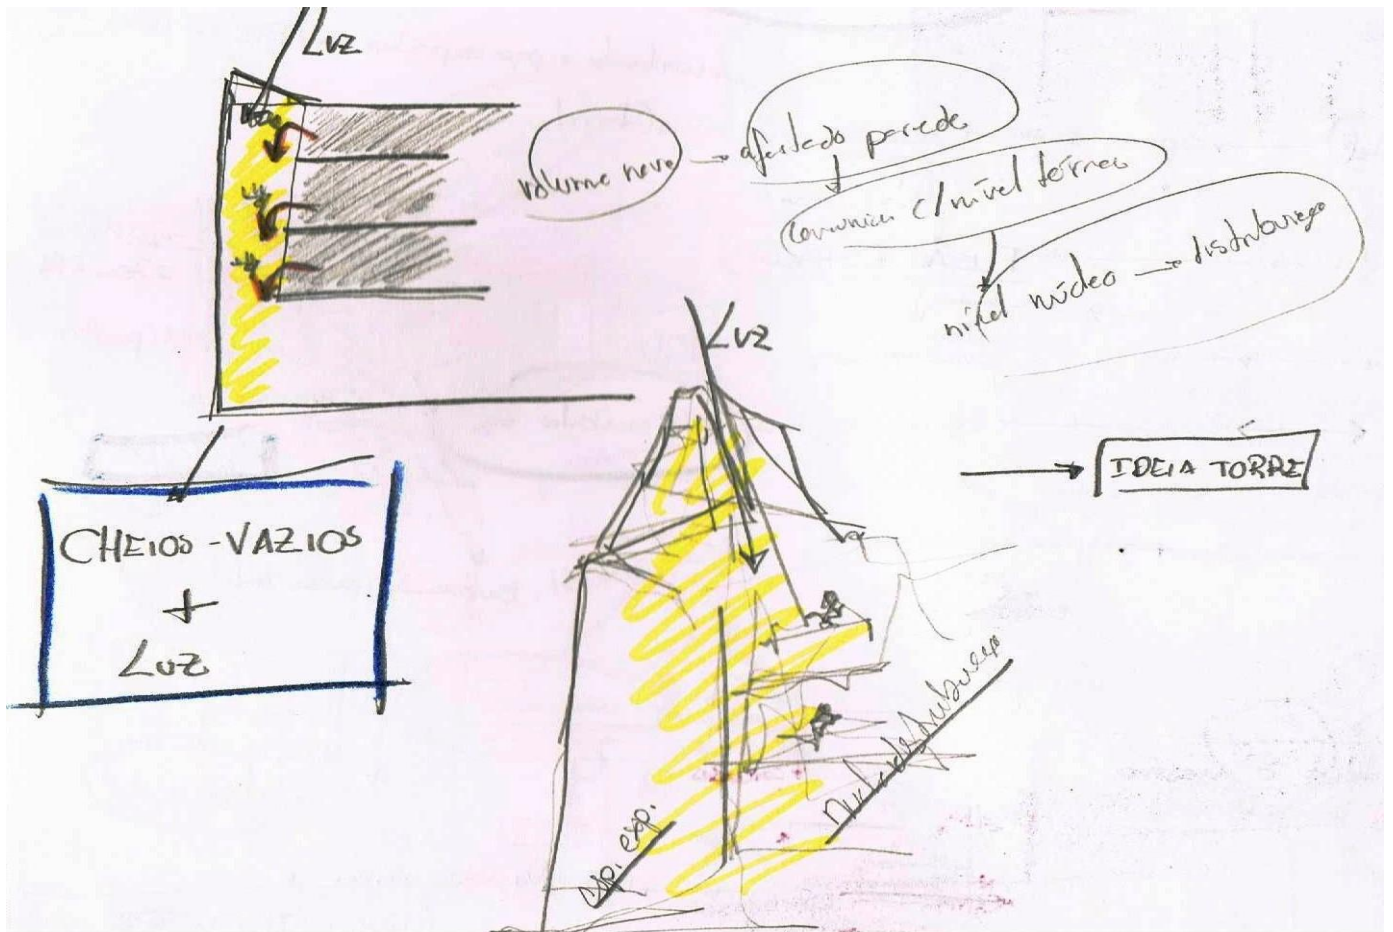 Luz
volume novo → afastado parede
comunica c/ nível térreo
nível núcleo → distribuição
Luz
IDEIA TORRE
CHEIOS - VAZIOS
+
Luz
núcleo distribuição
esp. exp.